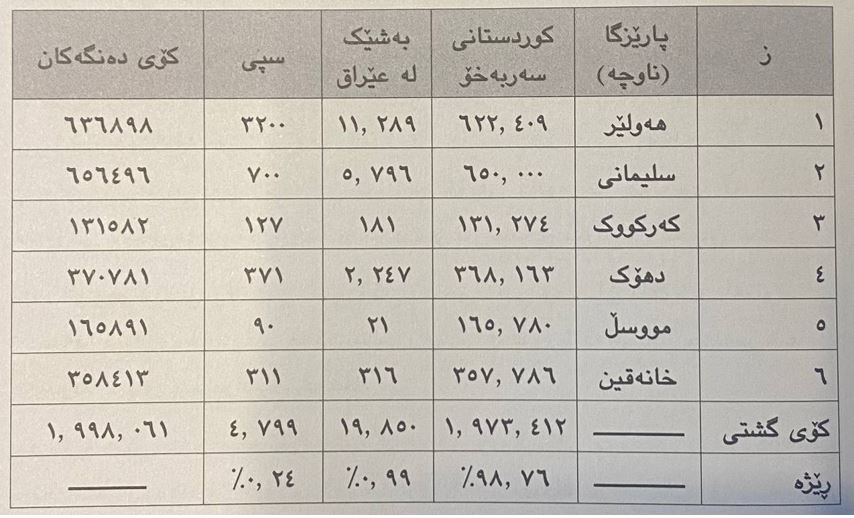 ز پارێزگا (ناوچە) کوردستانی سەربەخۆ بەشێک لە عێراق سپی کۆی دەنگەکان
١ هەولێر ٦٢٢, ٤٠٩ ١١, ٢٨٩ ٣٢٠٠ ٦٣٦٨٩٨
٢ سلیمانی ٦٥٠, ٠٠٠ ٥, ٧٩٦ ٧٠٠ ٦٥٦٤٩٦
٣ کەرکووک ١٣١, ٢٧٤ ١٨١ ١٢٧ ١٣١٥٨٢
٤ دهۆک ٣٦٨, ١٦٣ ٢, ٢٤٧ ٣٧١ ٣٧٠٧٨١
٥ مووسڵ ١٦٥, ٧٨٠ ٢١ ٩٠ ١٦٥٨٩١
٦ خانەقین ٣٥٧, ٧٨٦ ٣١٦ ٣١١ ٣٥٨٤١٣
کۆی گشتی ١, ٩٧٣, ٤١٢ ١٩, ٨٥٠ ٤, ٧٩٩ ١, ٩٩٨, ٠٦١
ڕێژە ٩٨, ٧٦٪ ٪٠, ٩٩ ٪٠, ٢٤